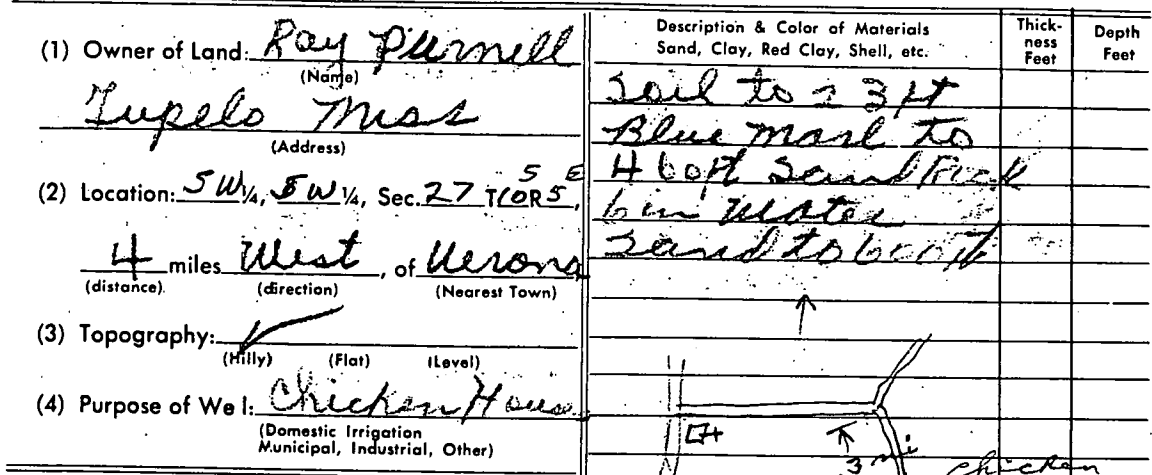 (1) Owner of Land: Ray Purnell
(Name)
Tupelo Miss
(Address)
(2) Location: SW 1/4, SW 1/4, Sec. 27 T10 S R5 E,
4 miles West, of Verona
(distance) (direction) (Nearest Town)
(3) Topography: ✓
(Hilly) (Flat) (Level)
(4) Purpose of Wel l: Chicken House
(Domestic Irrigation
Municipal, Industrial, Other)
Description & Color of Materials
Sand, Clay, Red Clay, Shell, etc.
Thick-
ness
Feet
Depth
Feet
Soil to 23 ft
Blue Marl to
460 ft Sand Rock
6 in Water
Sand to 600 ft
3 mi
chicken